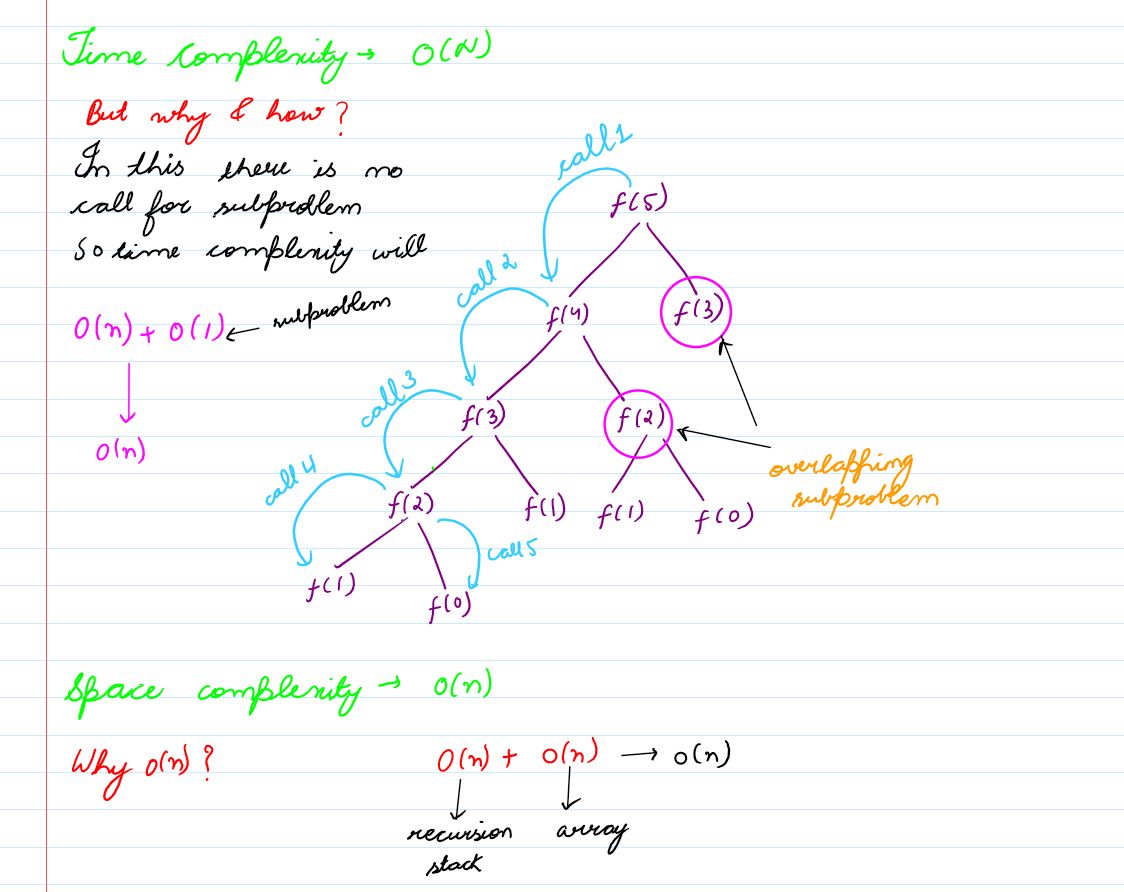 Time Complexity → O(N)
But why & how?
In this there is no
call for subproblem
So time complexity will
O(n) + O(1) ← subproblem
↓
O(n)
call 1
f(5)
call 2
f(4)
f(3)
call 3
f(3)
f(2)
overlapping
subproblem
call 4
f(2)
f(1)
f(1)
f(0)
call 5
f(1)
f(0)
Space complexity → O(n)
Why O(n)?
O(n) + O(n) → O(n)
recursion
stack
array